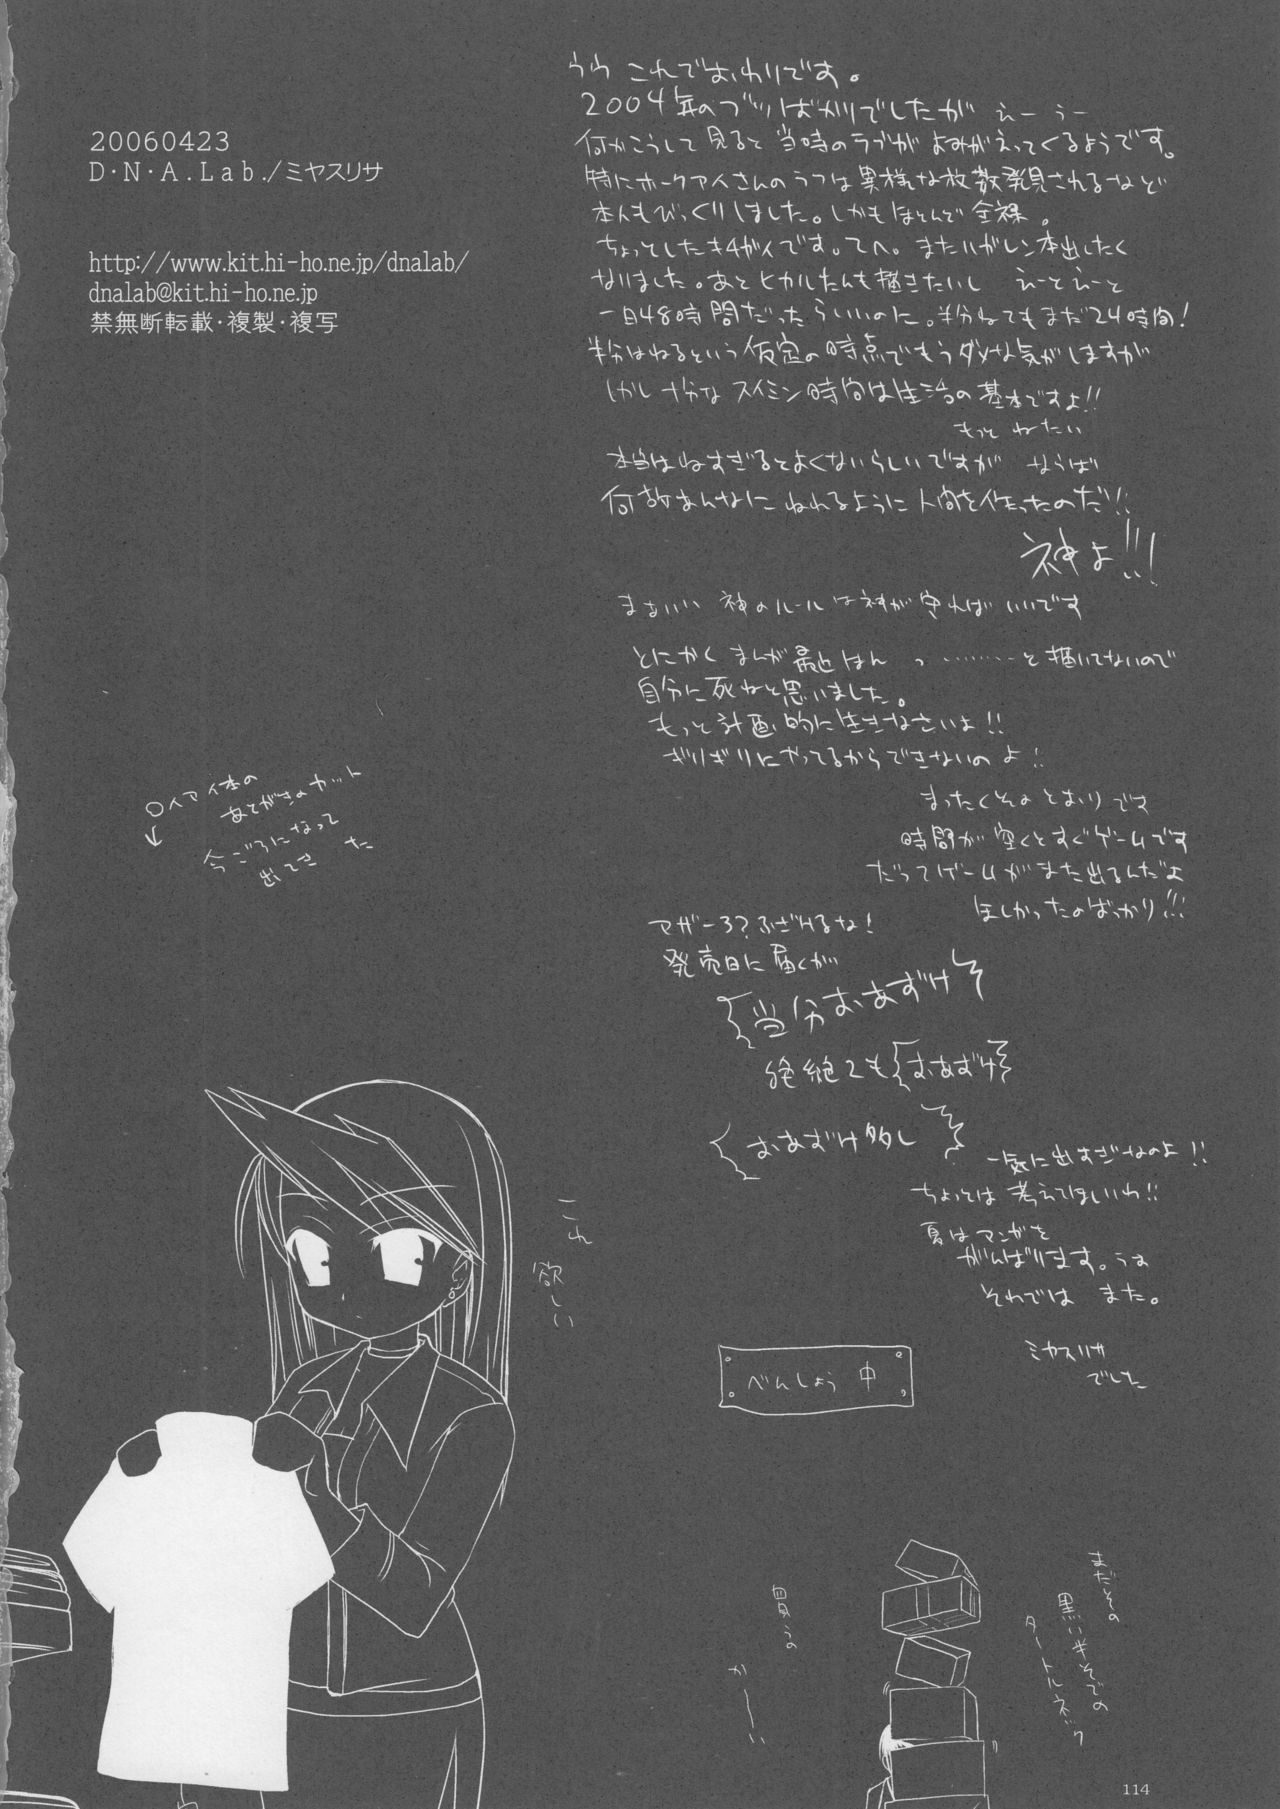 20060423
D・N・A.Lab./ミヤスリサ
http://www.kit.hi-ho.ne.jp/dnalab/
dnalab@kit.hi-ho.ne.jp
禁無断転載・複製・複写
うう これでおわりです。
2004年のブツばかりでしたが えー うー
何かこうして見ると当時のラブがよみがえってくるようです。
特にホークアイさんのラフは異様な枚数発見されるなど
本人もびっくりしました。しかもほとんど全裸。
ちょっとしたキチガイです。てへ。またハガレン本出したく
なりました。あとヒカルたんも描きたいし えーとえーと
一日48時間だったらいいのに。半分ねてもまだ24時間!
半分はねるという仮定の時点でもうダメな気がしますが
しかし十分なスイミン時間は生活の基本ですよ!!
もっと ねたい
本当はねすぎるとよくないらしいですが ならば
何故あんなに ねれるように人間を作ったのだ!!
神よ!!!
まあいい 神のルールは神が守ればいいです
とにかくまんが最近ほんっ………と描いてないので
自分に死ねと思いました。
もっと計画的に生きなさいよ!!
ぎりぎりにやってるからできないのよ!
まったくそのとおりです
時間が空くとすぐゲームです
だってゲームがまた出るんだよ
ほしかったのばっかり!!!
マザー3?ふざけるな!
発売日に届くが
当分おあずけ
絶絶2もおあずけ
おあずけ多し
一気に出すぎなのよ!!
ちょっとは考えてほしいわ!!
夏はマンガを
がんばります。うお
それでは また。
ミヤスリサ
でした
べんしょう中
〇イアイ本の
あとがきのカット
今ごろになって
出てきた
これ
欲しい
まだその
黒い半そでの
タートルネック
買うの
かーーい
114